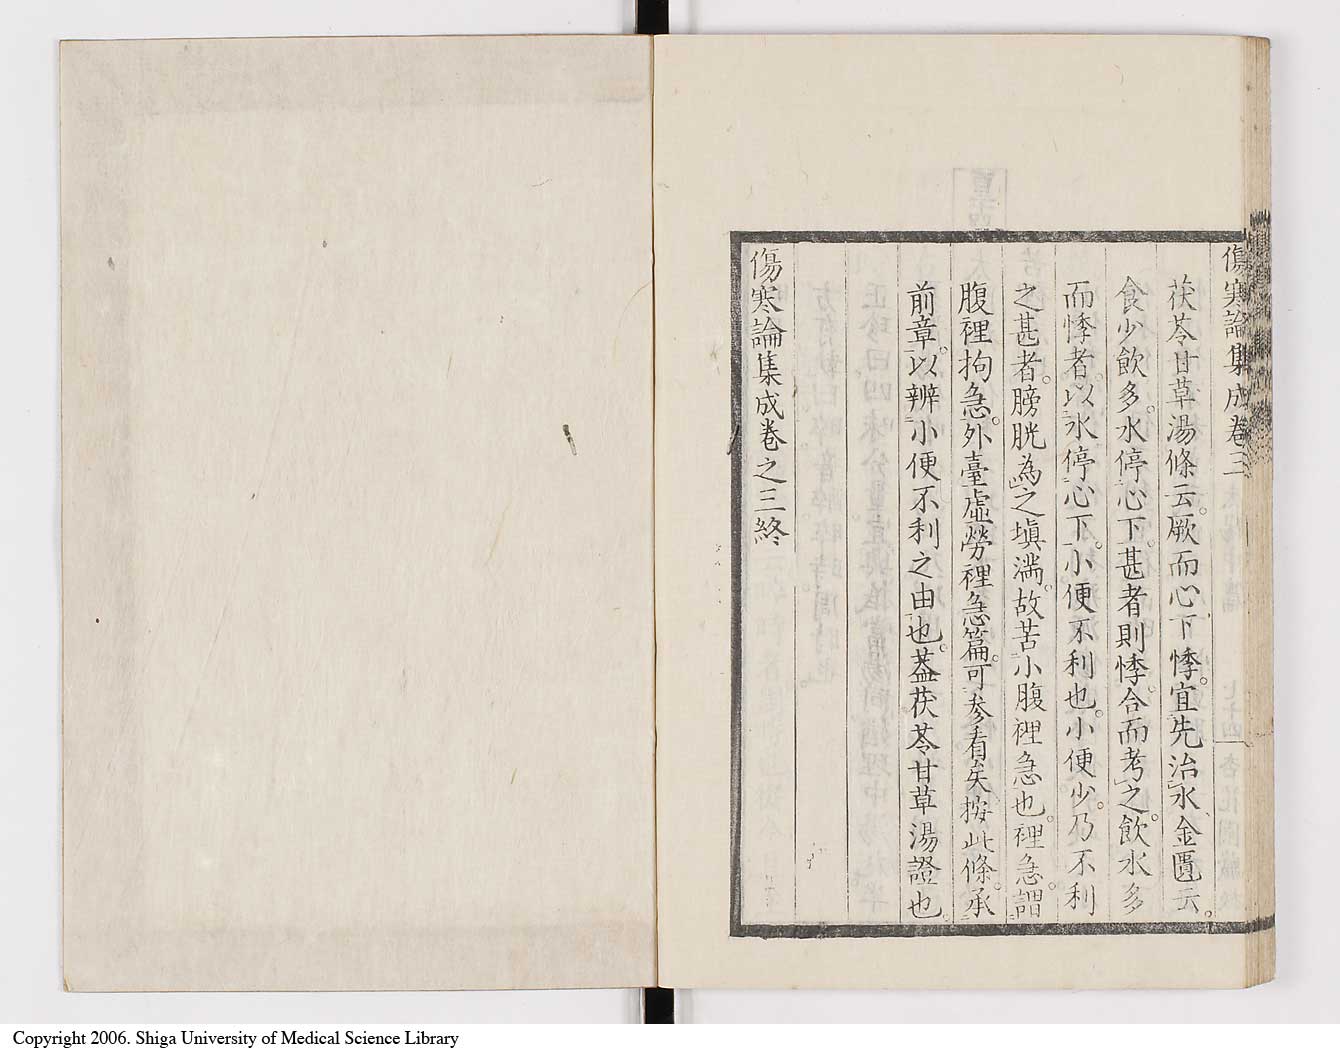 傷寒論集成卷三
茯苓甘草湯條云。厥而心下悸。宜先治水金匱云。
食少飲多。水停心下。甚者則悸。合而考之。飲水多
而悸者。以水停心下。小便不利也。小便少。乃不利
之甚者。膀胱為之塡滿。故苦小腹裡急也。裡急。謂
腹裡拘急。外臺虛勞裡急篇。可參看矣。按此條。承
前章。以辨小便不利之由也。蓋茯苓甘草湯證也。
傷寒論集成卷之三終
Copyright 2006. Shiga University of Medical Science Library